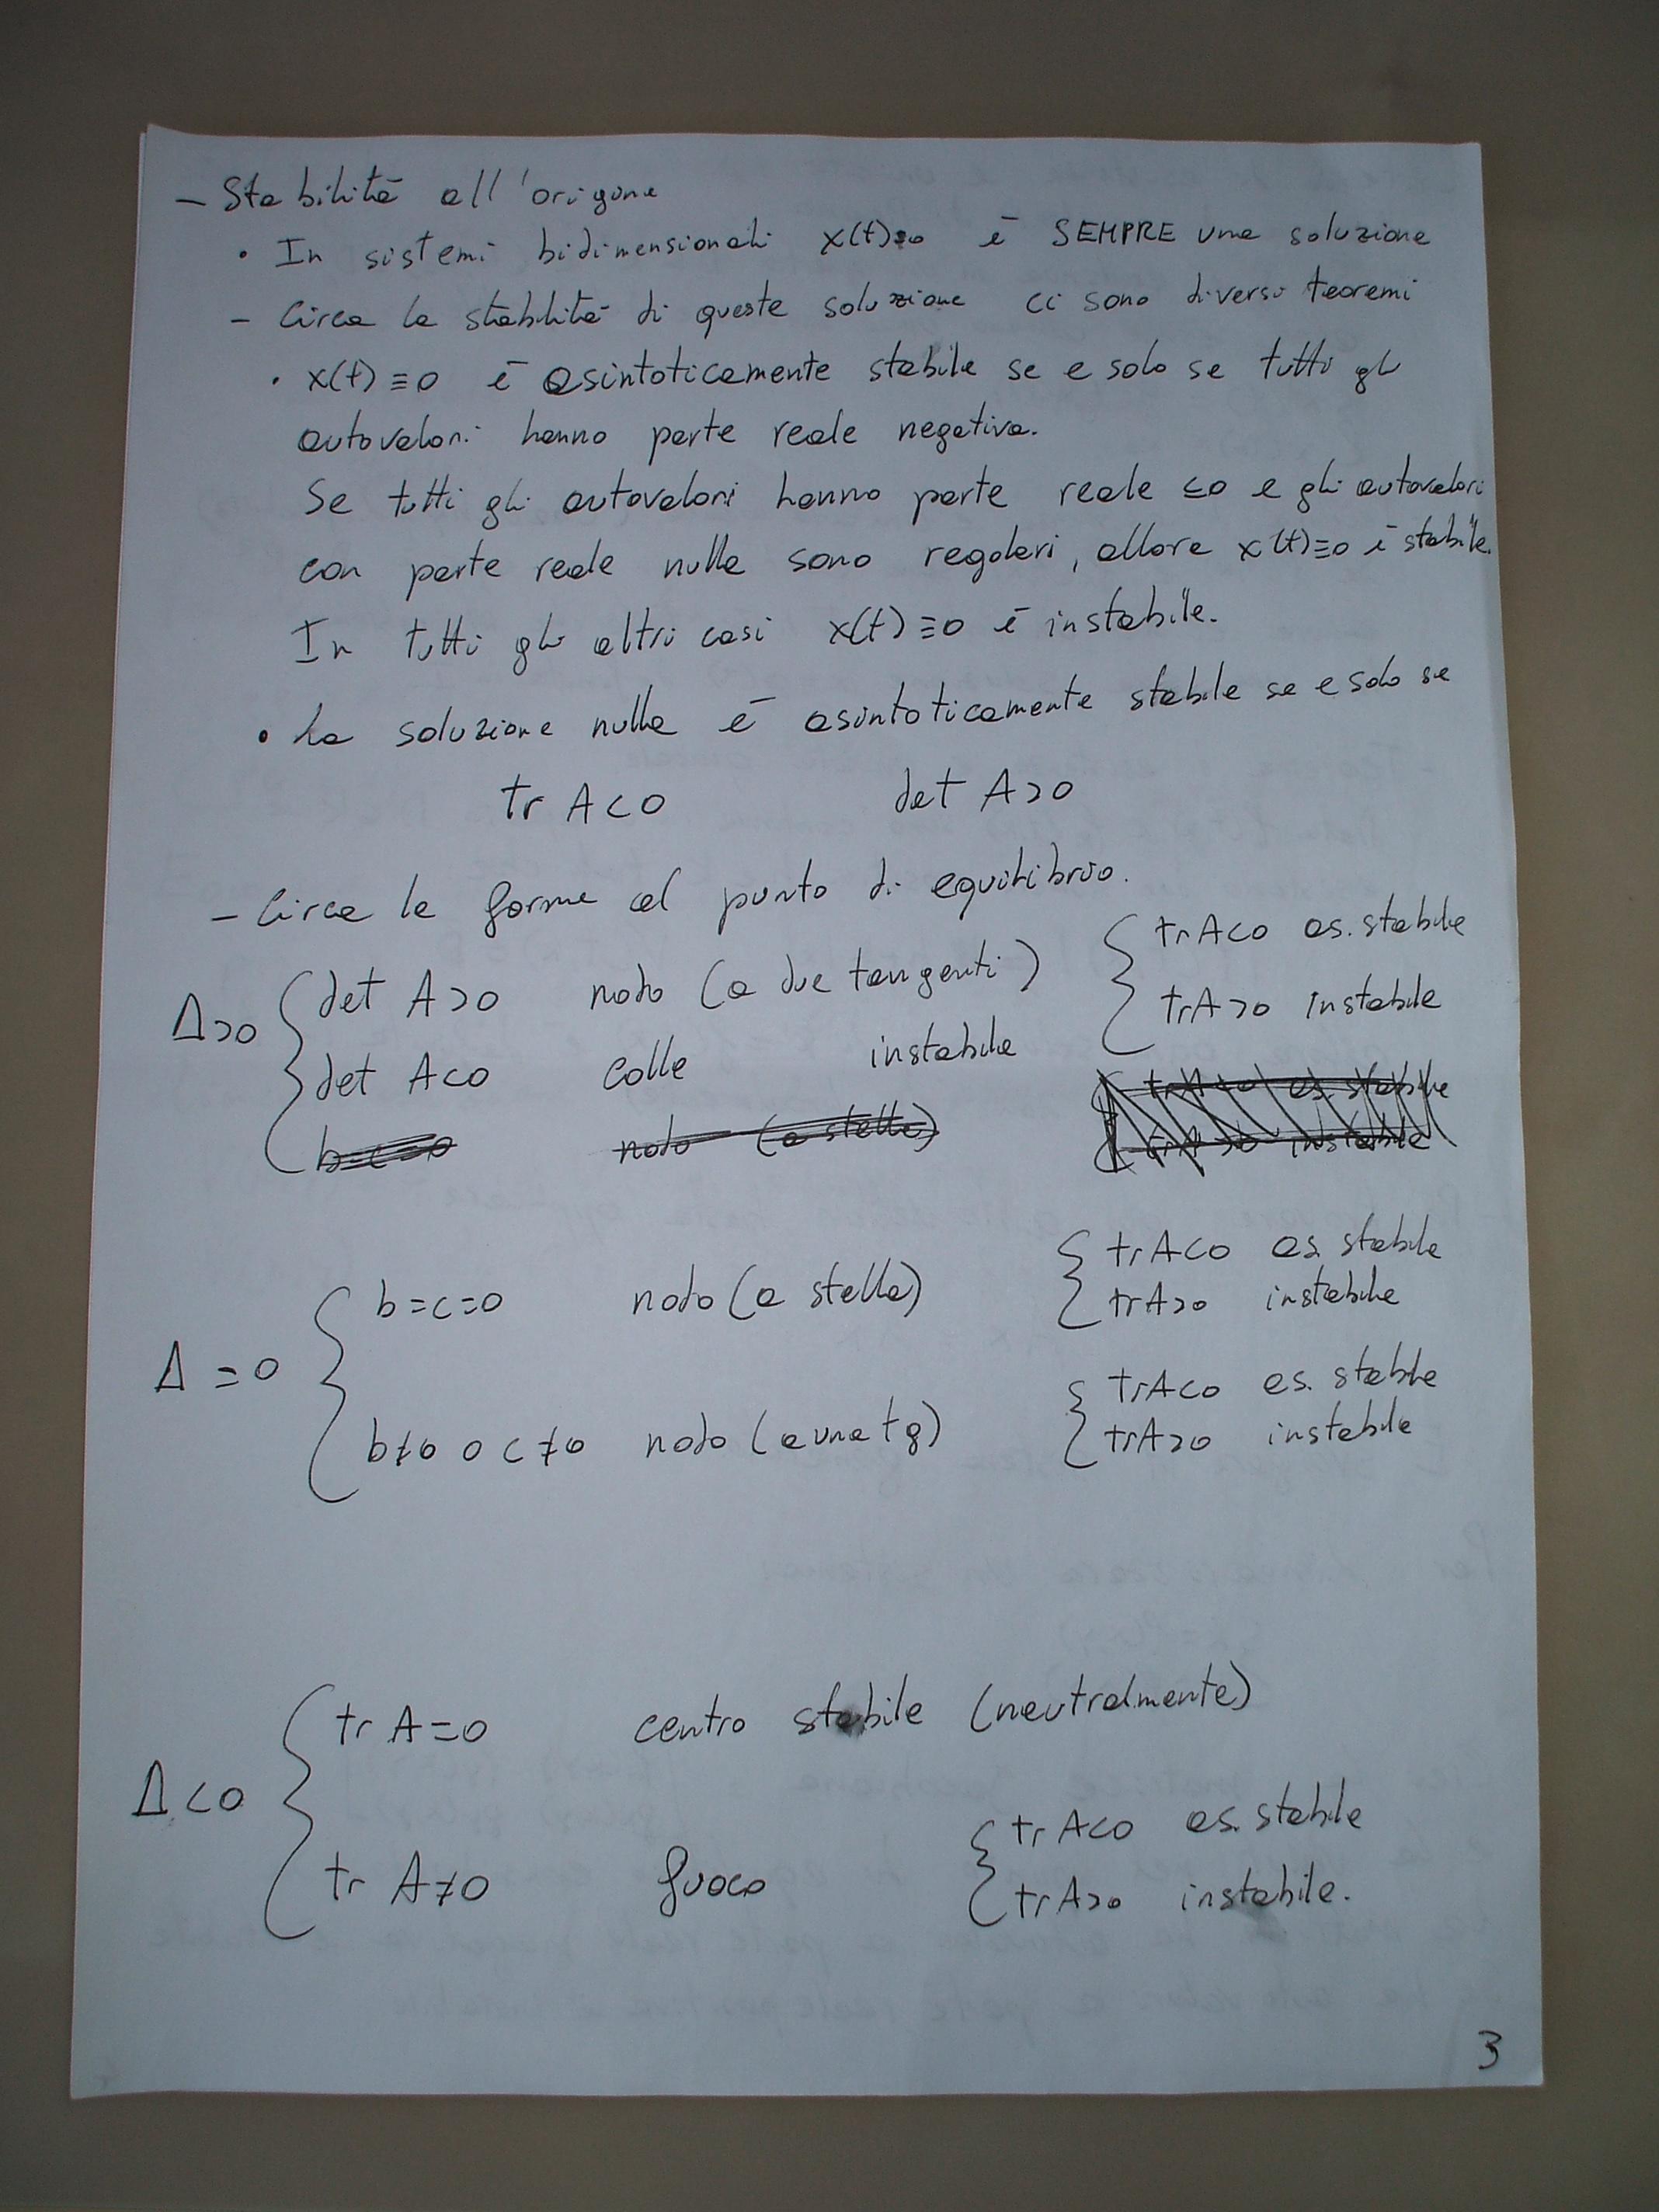 - Stabilità all'origine
• In sistemi bidimensionali x(t)≡0 è SEMPRE una soluzione
- Circa la stabilità di queste soluzione ci sono diversi teoremi
• x(t)≡0 è asintoticamente stabile se e solo se tutti gli
autovalori hanno parte reale negativa.
Se tutti gli autovalori hanno parte reale ≤0 e gli autovalori
con parte reale nulla sono regolari, allora x(t)≡0 è stabile.
In tutti gli altri casi x(t)≡0 è instabile.
• La soluzione nulla è asintoticamente stabile se e solo se
tr A<0 det A>0
- Circa la forma al punto di equilibrio.
Δ>0 { det A>0 nodo (a due tangenti) { trA<0 as. stabile
trA>0 instabile
det A<0 colle instabile
b=c=0 nodo (a stella) { trA<0 as. stabile
trA>0 instabile
Δ=0 { b=c=0 nodo (a stella) { trA<0 as. stabile
trA>0 instabile
b≠0 o c≠0 nodo (a una tg) { trA<0 as. stabile
trA>0 instabile
Δ<0 { tr A=0 centro stabile (neutralmente)
tr A≠0 fuoco { tr A<0 as. stabile
trA>0 instabile.
3